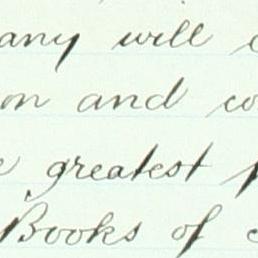 any will
on and co
greatest
Books of